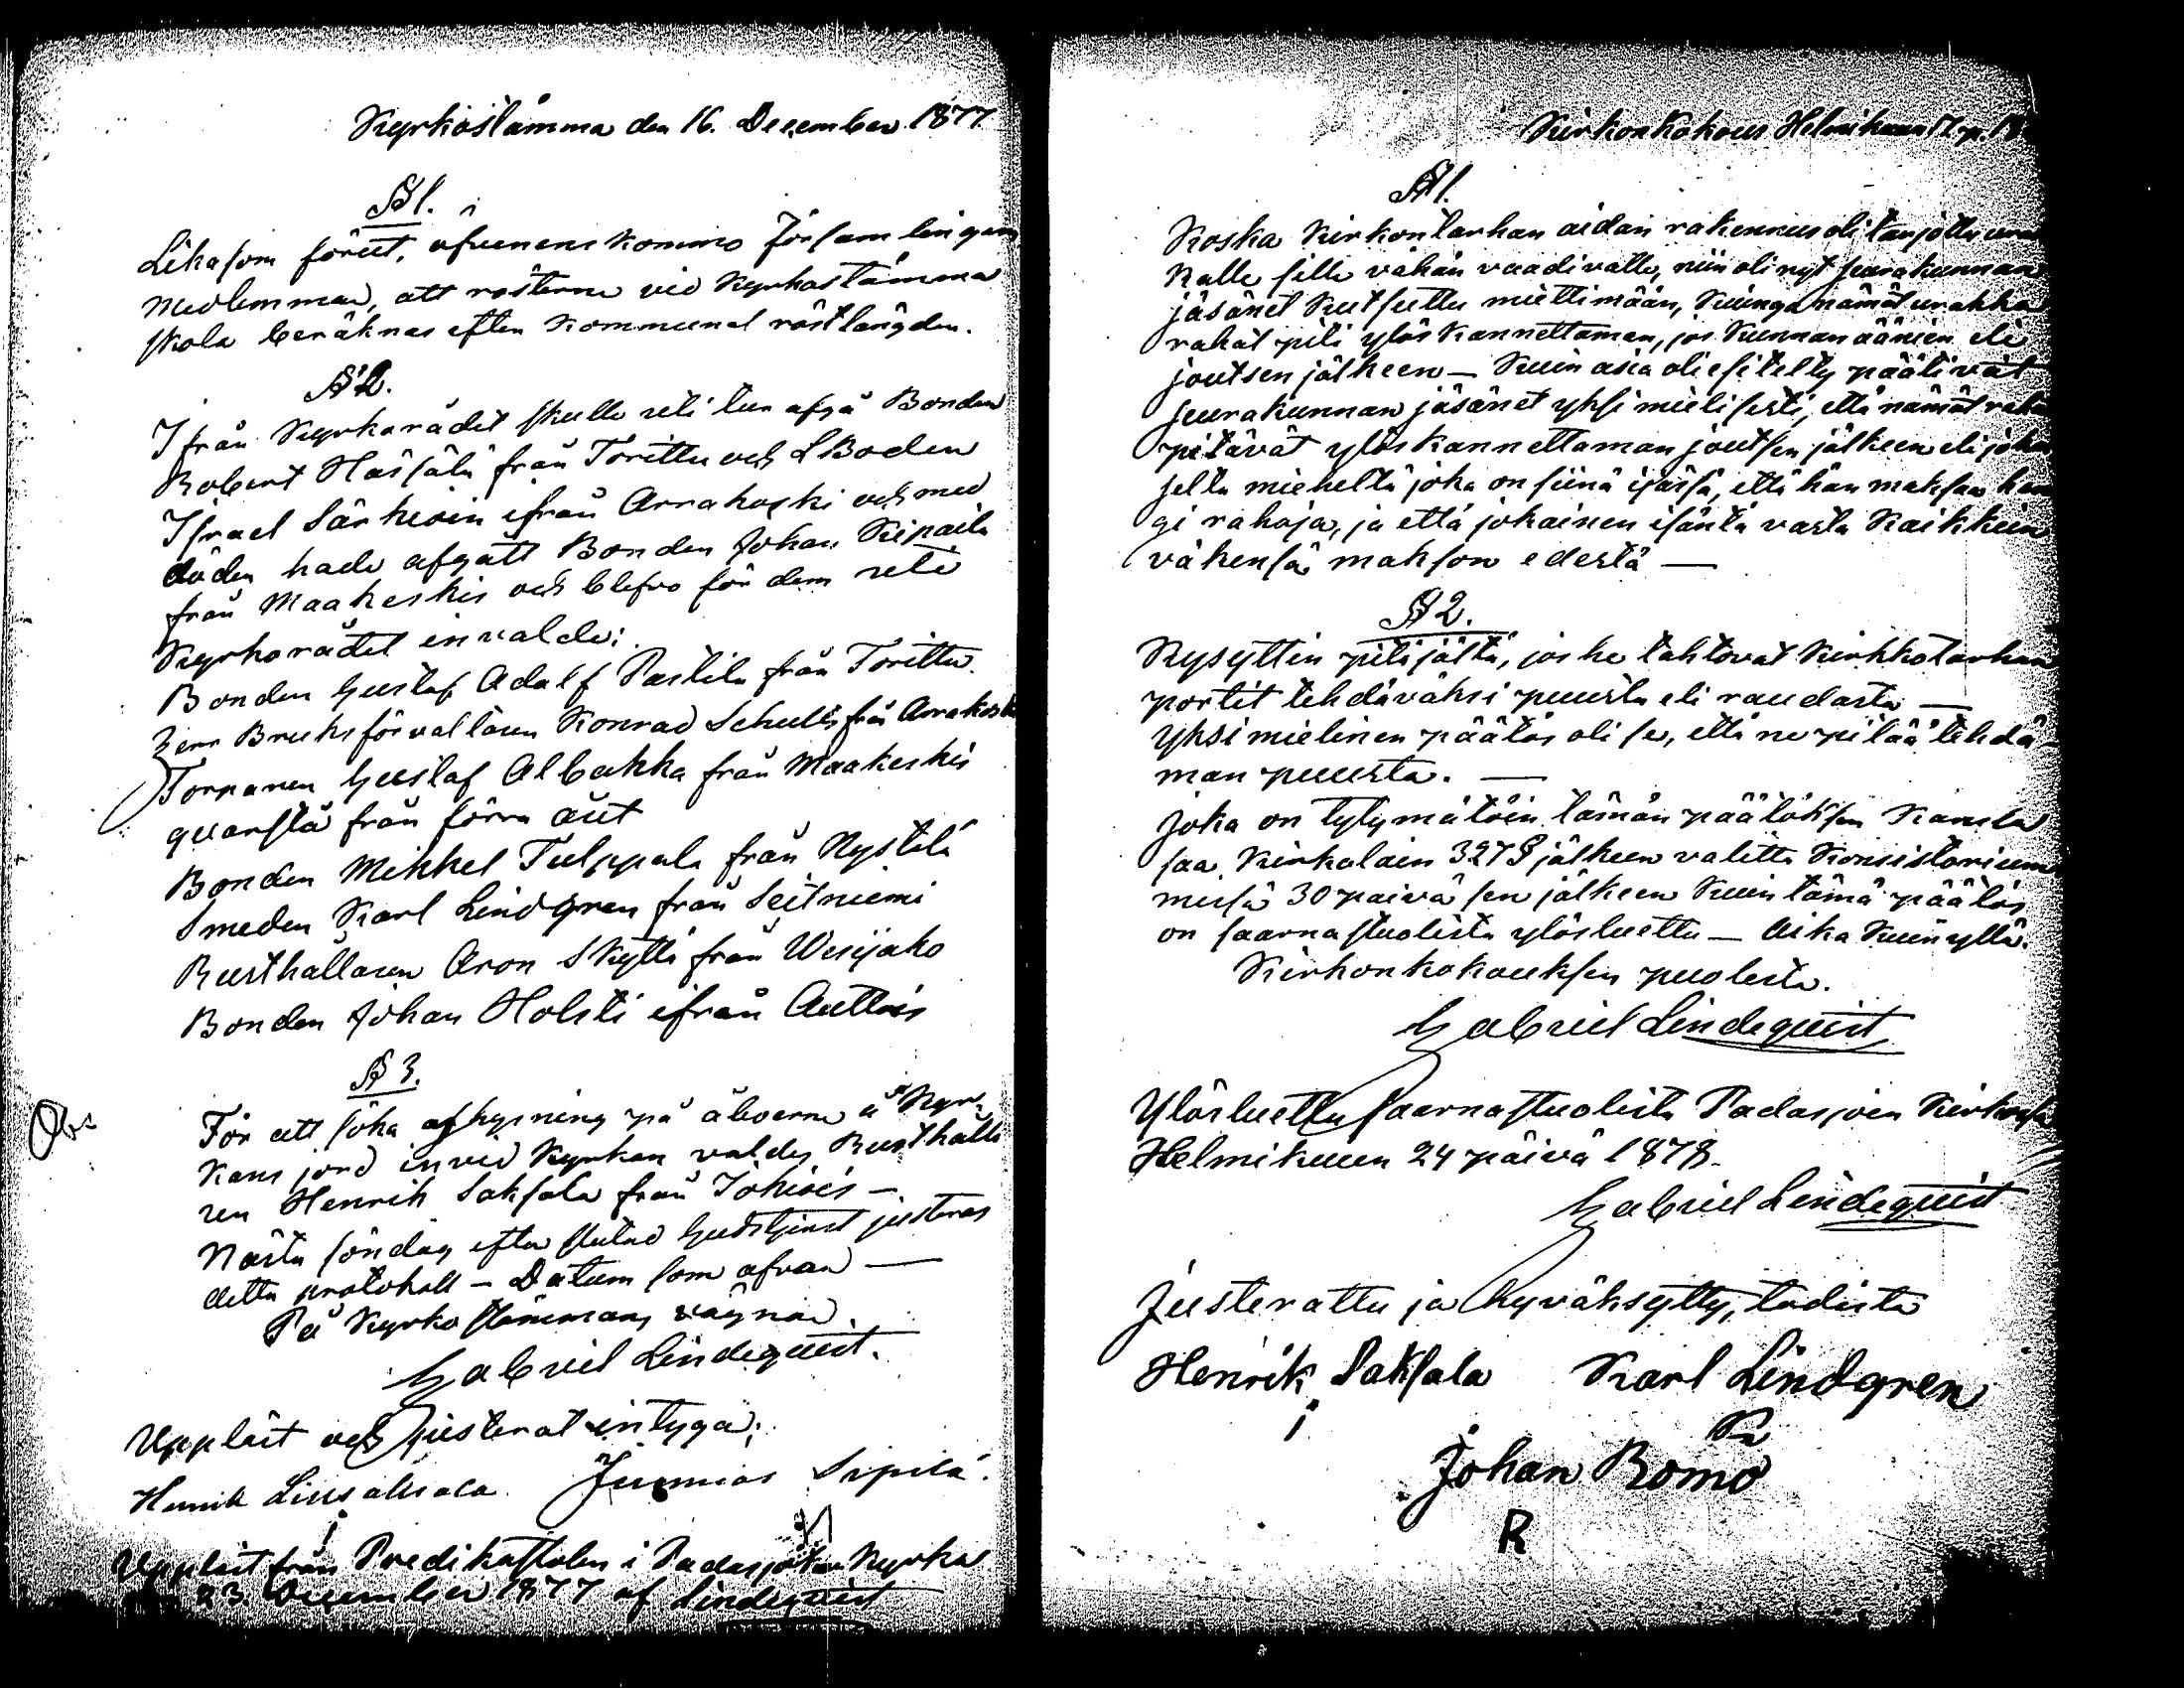 Kyrkostämma den 16. December 1877
§ 1.
Lika som förut, öfverenskommo Församlingens
Medlemmar, att rösterna vid Kyrkostämma
skola beräknas efter Kommunal röstlängden.
§ 2.
Ifrån Kyrkorådet skulle uti tur afgå Bonden
Robert Hassälä från Torittu och LBoden
Israel Särkivin ifrån Arrakoski och med
döden hade afgått Bonden Johan Kipaila
från Maakeskis och blefvo för dem uti
Kyrkorådet invalde:
Bonden Gustaf Adolf Pastila från Torittu.
Herr Bruksförvaltaren Konrad Schults från Arrakoski
Torparen Gustaf Albakka från Maakeskis
quarstå från förra året
Bonden Mikkel Tulppala från Nystölä
Smeden Karl Lindgren från Seitniemi
Rusthållaren Aron Skyttä från Wesijako
Bonden Johan Holsti ifrån Auttois
§ 3.
Obs
För att söka afhysning på åboerne å Kyr-
kans jord invid Kyrkan valdes Rusthålla
ren Henrik Saksala från Jokiois –
Nästa söndag efter slutad Gudstjenst justeras
detta protokoll – Datum som ofvan —
På Kyrkostämmans vägnar.
Gabriel Lindequist.
Uppläst och justerat intyga;
Henrik Junias Sipilä.
Uppläst från Predikstolen i Padasjoki Kyrka
23. December 1877 af Lindequist
Kirkonkokous Helmikuun 17 p. 18
§ 1.
Koska Kirkontarhan aidan rakennus oli tarjottu ura
kalle sille vähän vaadivalle, niin oli nyt seurakunnan
jäsänet Kutsuttu miettimään, Kuinga nämät urakka
rahat piti ylöskannettaman, jos Kunnan äänien eli
joutsen jälkeen — Kuin asia oli esitelty päätivät
seurakunnan jäsänet yksimielisesti, että nämät raha
pitävät ylöskannettaman joutsen jälkeen eli joka
selta mieheltä joka on siinä ijässä, että hän maksaa hen
gi rahoja, ja että jokainen isäntä vasta Kaikkein
väkensä makson edestä —
§ 2.
Kysyttin pitäjältä, jos he tahtovat Kirkkotarhan
portit tehdäväksi puusta eli raudasta —
yksimielinen päätös oli se, että ne pitää tehdä-
män puusta. —
Joka on tytymätöin tämän päätöksen Kansa
saa Kirkolain 327 § jälkeen valitta Konsistorium
missä 30 paivä sen jälkeen Kuin tämä päätös
on saarnastuolista ylösluettu — Aika Kuin yllä.
Kirkonkokouksen puolesta.
Gabriel Lindequist
Ylösluettu saarnastuolista Padasjoen Kirkossa
Helmikuun 24 päivä 1878.
Gabriel Lindequist
Justerattu ja hyväksytty, todista
Henrik Saksala Karl Lindgren
Johan Bomo
R